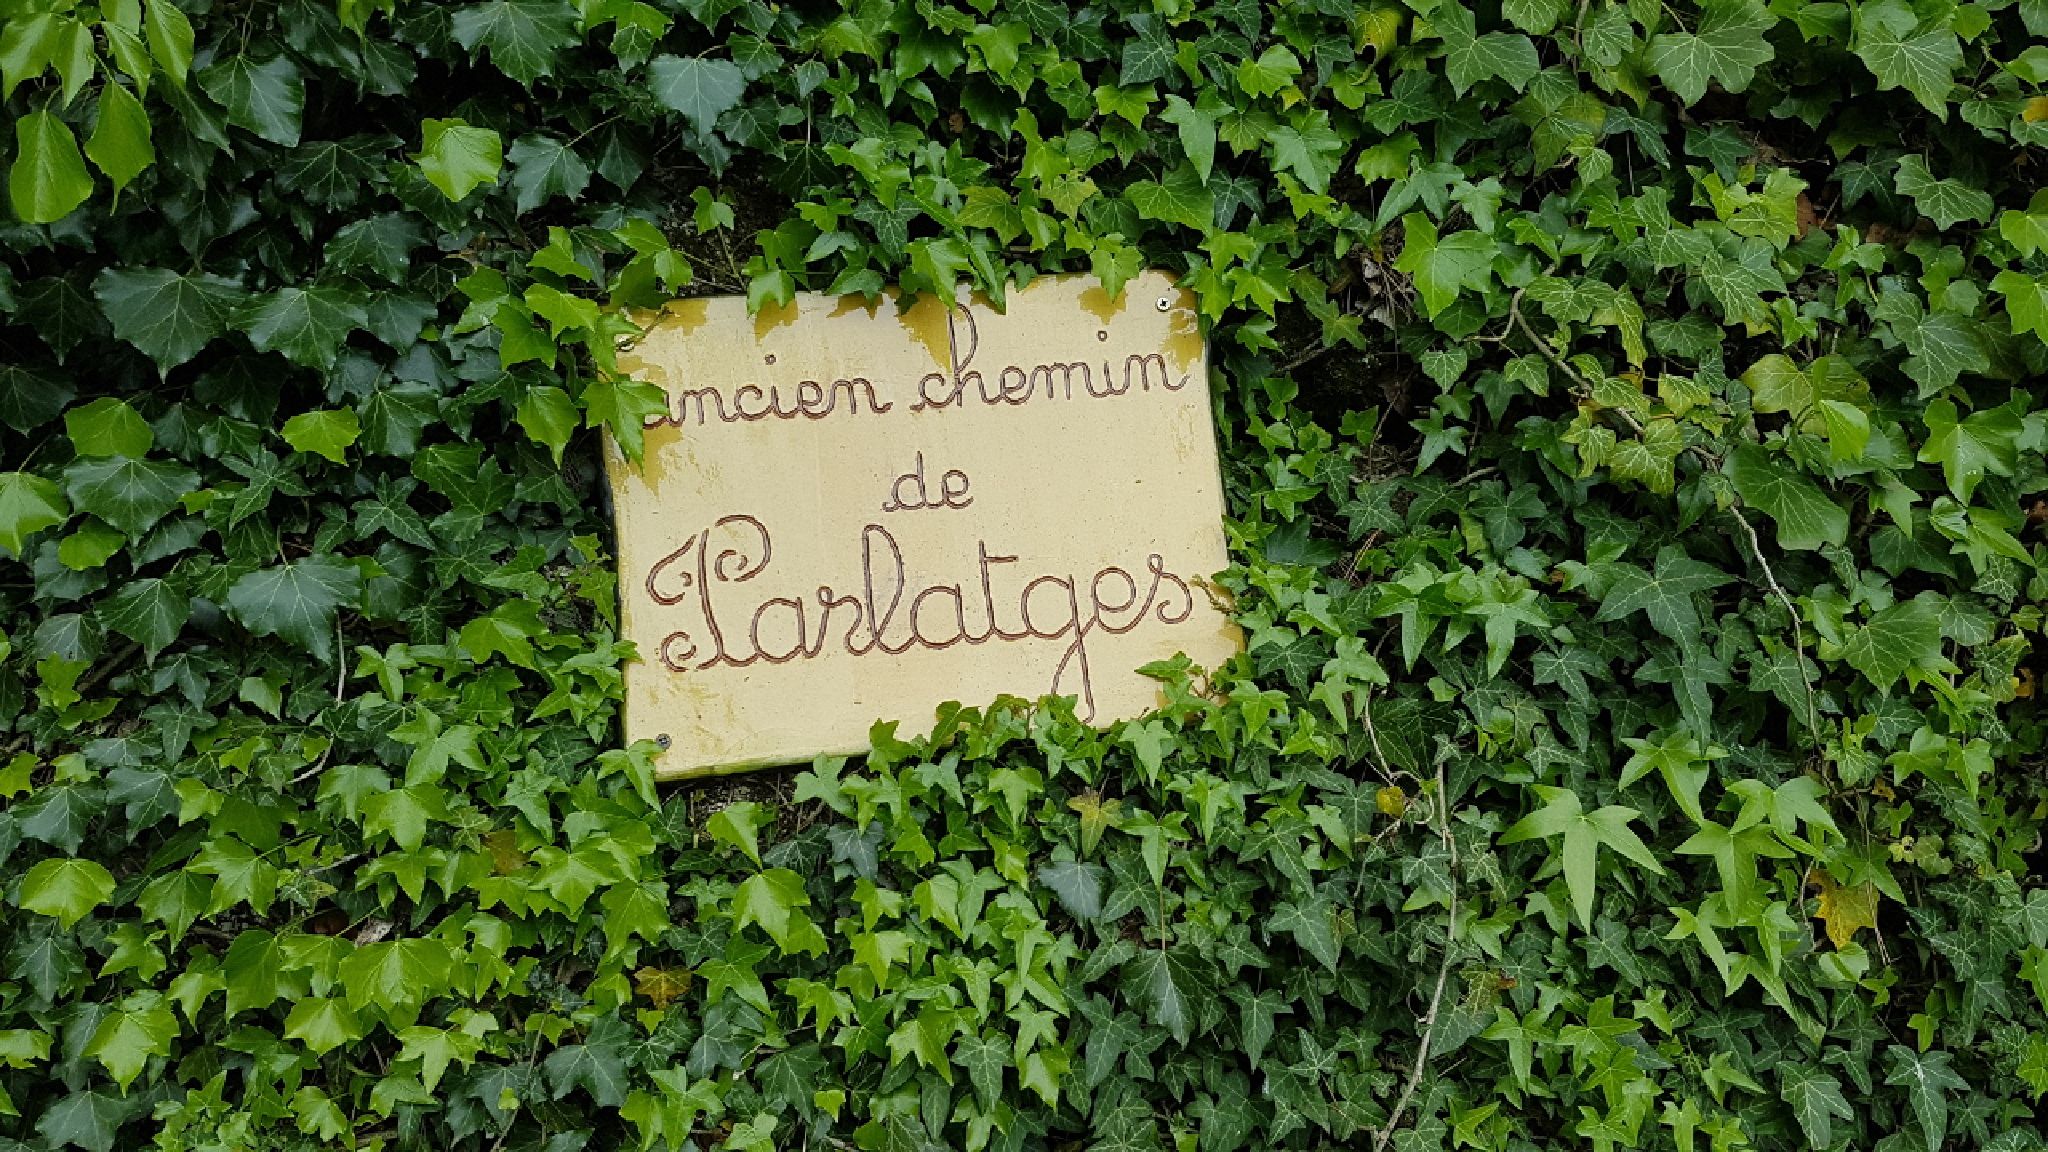 ancien chemin
de
Parlatges